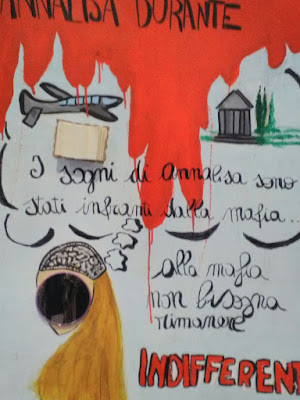 ANNALISA DURANTE
I sogni di Annalisa sono
stati infranti dalla mafia..
alla mafia
non bisogna
rimanere
INDIFFERENT